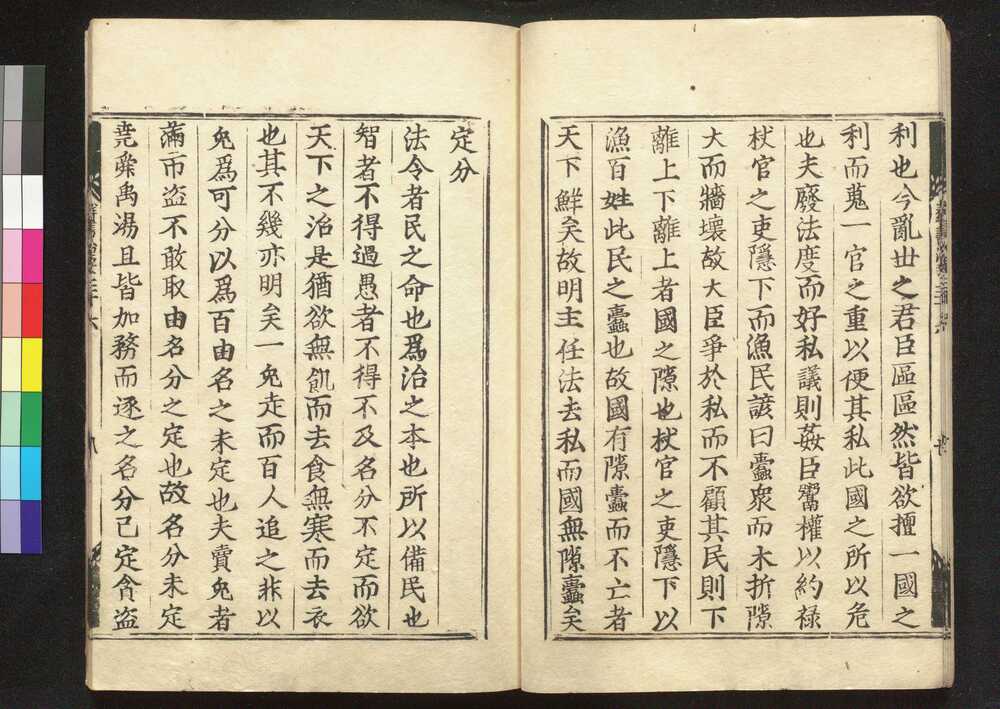 利也今亂世之君臣區區然皆欲擅一國之
利而蒐一官之重以便其私此國之所以危
也夫廢法度而好私議則姦臣鬻權以約祿
杖官之吏隱下而漁民諺曰蠹衆而木折隙
大而牆壞故大臣爭於私而不顧其民則下
離上下離上者國之隙也杖官之吏隱下以
漁百姓此民之蠹也故國有隙蠹而不亡者
天下鮮矣故明主任法去私而國無隙蠹矣
定分
法令者民之命也爲治之本也所以備民也
智者不得過愚者不得不及名分不定而欲
天下之治是猶欲無飢而去食無寒而去衣
也其不幾亦明矣一兔走而百人追之非以
兔爲可分以爲百由名之未定也夫賣兔者
滿市盜不敢取由名分之定也故名分未定
堯舜禹湯且皆加務而逐之名分已定貪盜